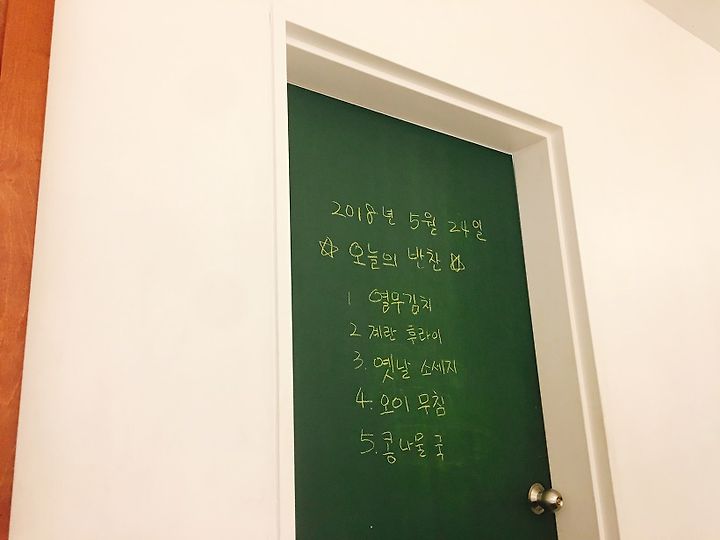 2018년 5월 24일
☆ 오늘의 반찬 ☆
1 열무김치
2 계란 후라이
3. 옛날 소세지
4. 오이 무침
5. 콩나물 국